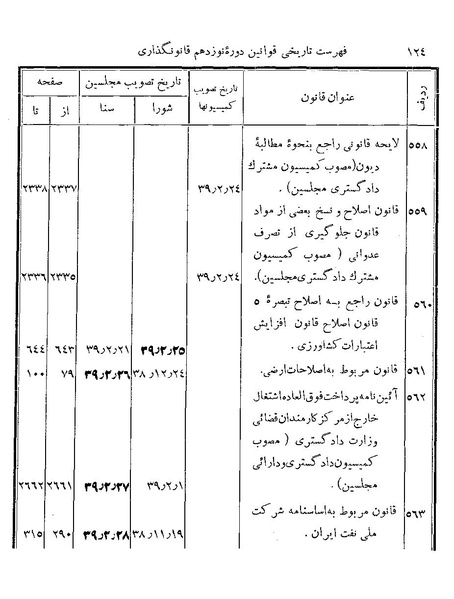 ۱۲٤ فهرست تاریخی قوانین دورهٔ نوزدهم قانونگذاری
ردیف عنوان قانون تاریخ تصویب کمیسیونها تاریخ تصویب مجلسین صفحه
شورا سنا از تا
۵۵۸ لایحه قانونی راجع بنحوهٔ مطالبهٔ
دیون(مصوب کمیسیون مشترك
دادگستری مجلسین). ۳۹٫۲٫۲٤ ۲۳۳۷ ۲۳۳۸
۵۵۹ قانون اصلاح و نسخ بعضی از مواد
قانون جلوگیری از تصرف
عدوانی ( مصوب کمیسیون
مشترك دادگستری مجلسین). ۳۹٫۲٫۲٤ ۲۳۳۵ ۲۳۳٦
۵٦۰ قانون راجع بـه اصلاح تبصرهٔ ۵
قانون اصلاح قانون افزایش
اعتبارات کشاورزی. ۳۹٫۲٫۲۵ ۳۹٫۲٫۲۱ ٦٤۳ ٦٤٤
۵٦۱ قانون مربوط به‌اصلاحات‌ارضی. ۳۸٫۱۲٫۲٤ ۳۹٫۲٫۲٦ ۷۹ ۱۰۰
۵٦۲ آئین‌نامه‌پرداخت‌فوق‌العاده‌اشتغال
خارج‌ازمرکزکارمندان‌قضائی
وزارت دادگستری ( مصوب
کمیسیون‌دادگستری‌ودارائی
مجلسین). ۳۹٫۲٫۱ ۳۹٫۲٫۲۷ ۲٦٦۱ ۲٦٦۲
۵٦۳ قانون مربوط به‌اساسنامه شرکت
ملی نفت ایران. ۳۸٫۱۱٫۱۹ ۳۹٫۲٫۲۸ ۲۹۰ ۳۱۵